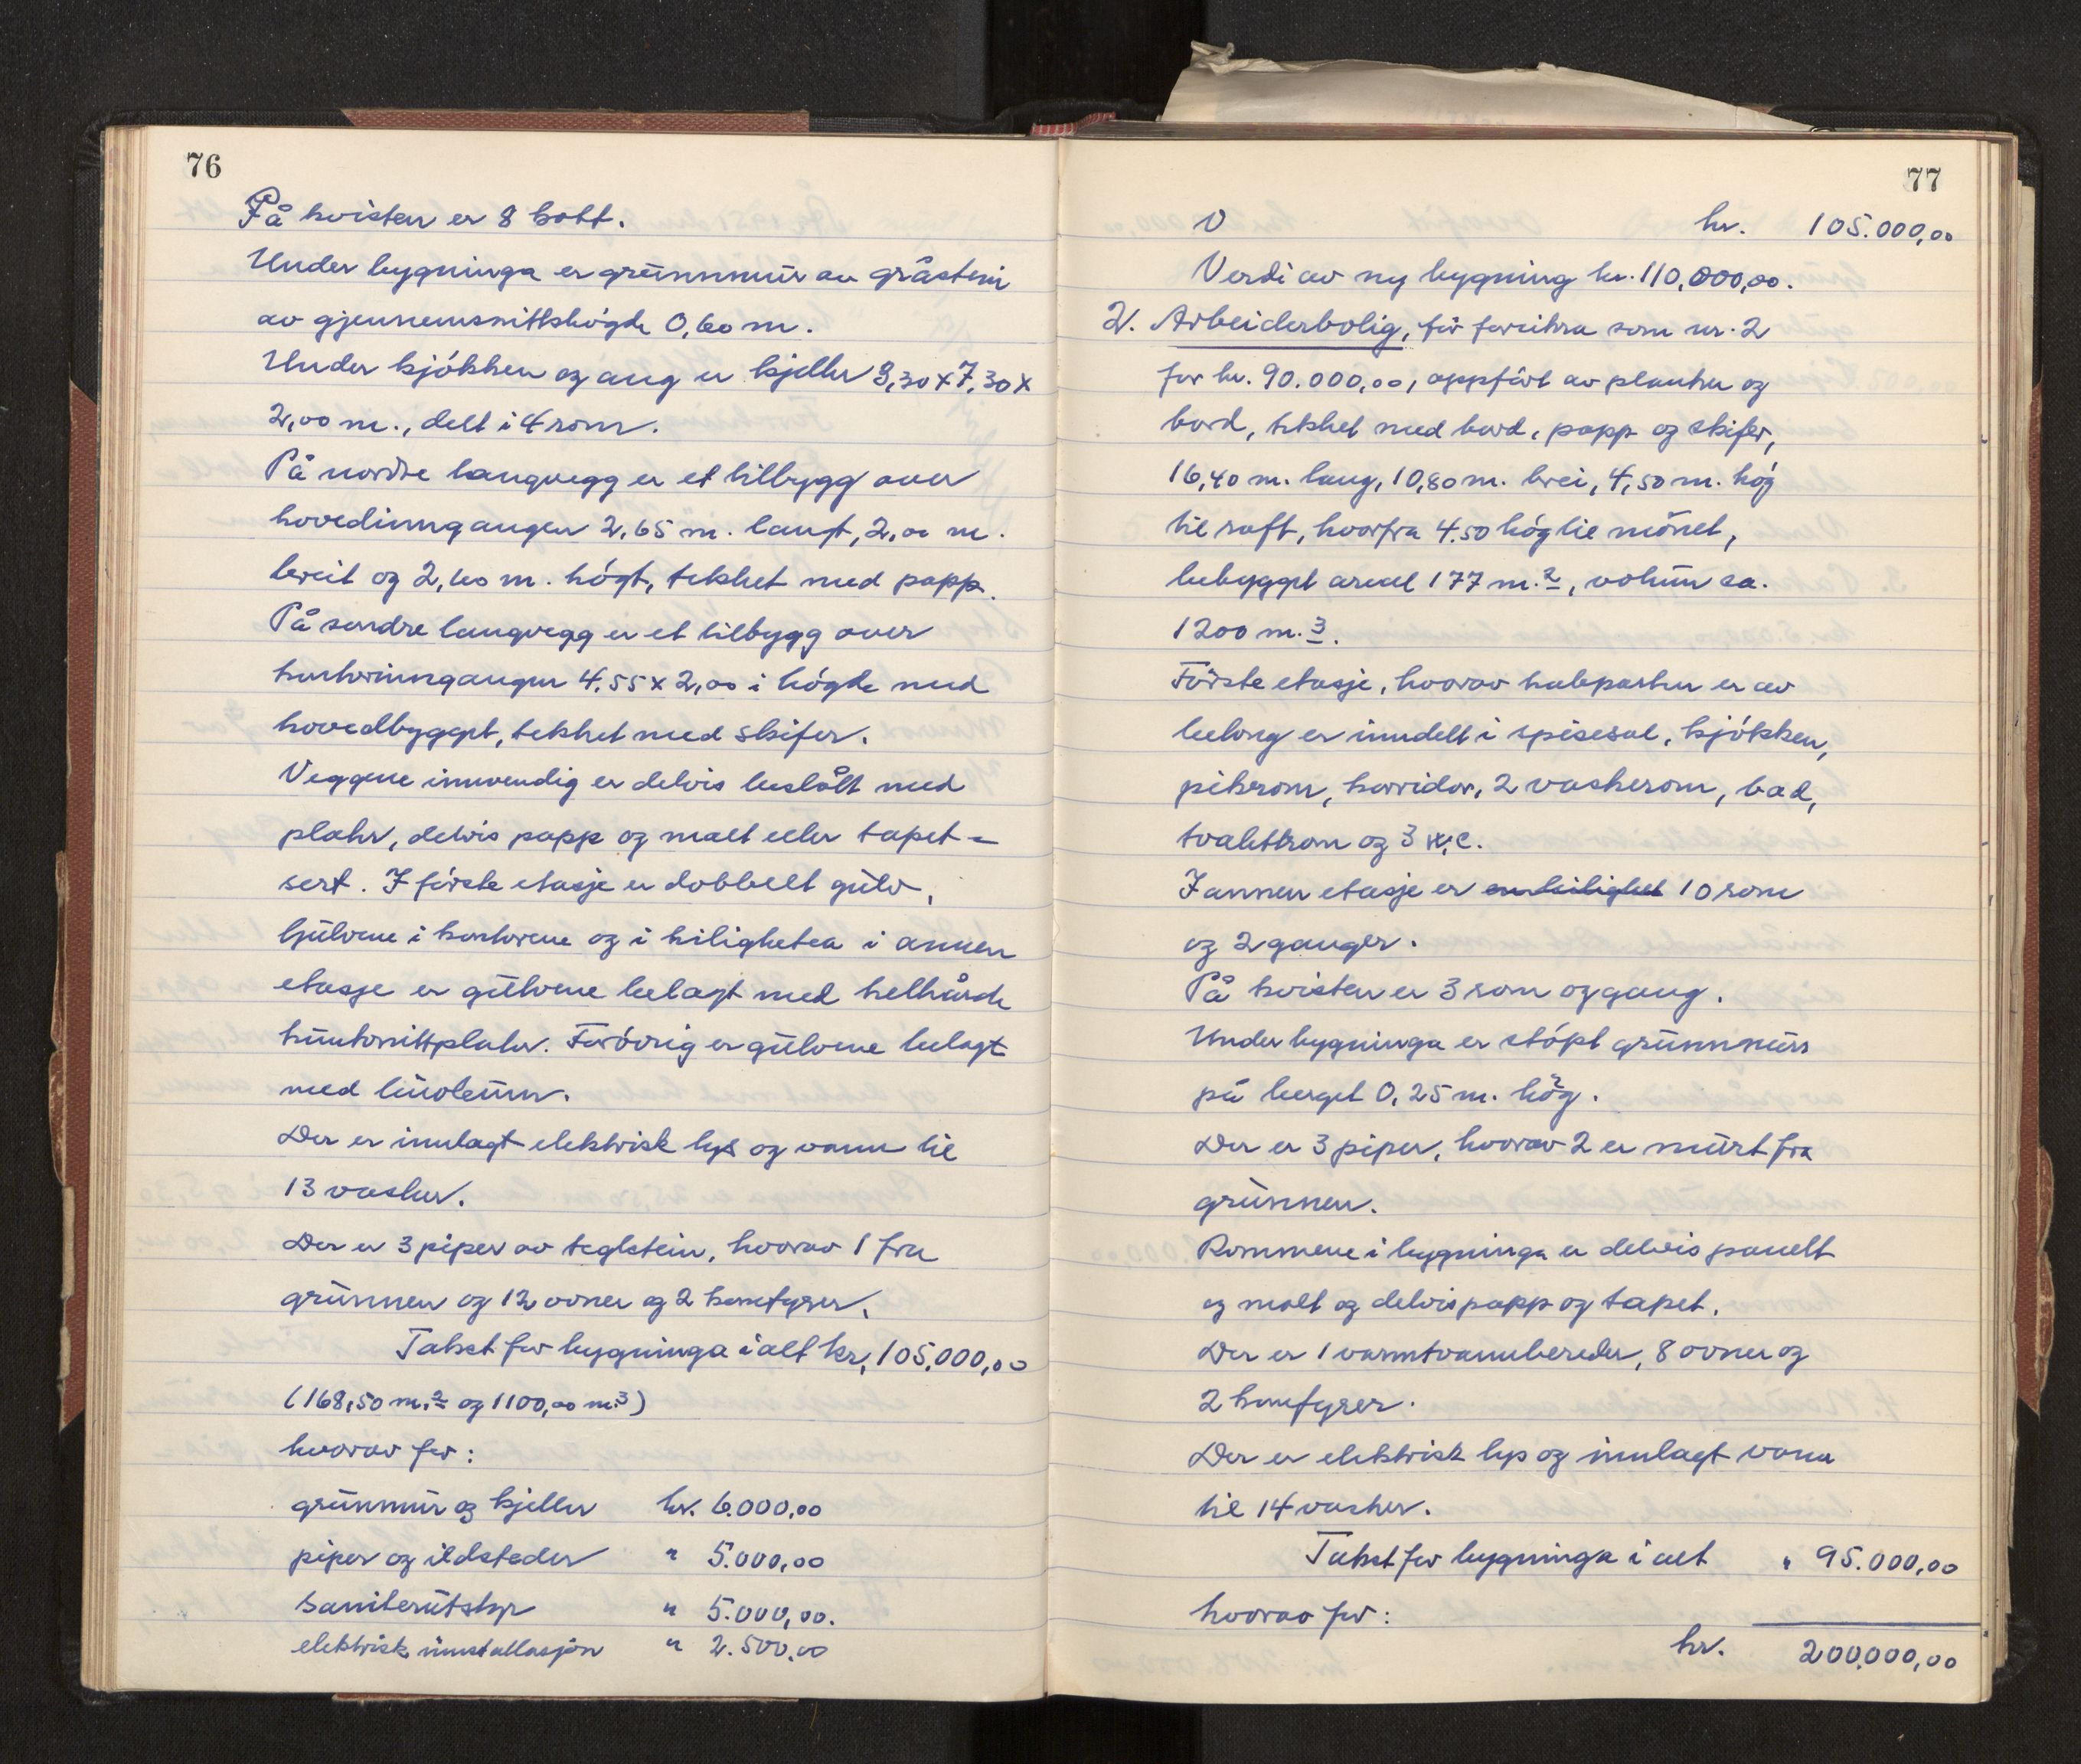 76
På kvisten er 8 kott.
Under bygninga er grunnmur av gråstein
av gjennemsnittshøgde 0,60 m.
Under kjøkken og gang er kjeller 9,30 x 7,30 x
2,00 m., delt i 4 rom.
På nordre langvegg er et tilbygg over
hovedinngangen 2,65 m. langt, 2,00 m.
breit og 2,60 m. høgt, tekket med papp.
På søndre langvegg er et tilbygg over
kontorinngangen 4,55 x 2,00 i høgde med
hovedbygget, tekket med skifer.
Veggene innvendig er delvis beslått med
plater, delvis papp og malt eller tapet-
sert. I første etasje er dobbelt gulv,
Gulvene i kontorene og i leiligheten i annen
etasje er gulvene belagt med helhårde
huntonittplater. Forøvrig er gulvene belagt
med linoleum.
Der er innlagt elektrisk lys og vann til
13 vasker.
Der er 3 piper av teglstein, hvorav 1 fra
grunnen og 12 ovner og 2 komfyrer.
Takst for bygninga ialt kr. 105.000,00
(168,50 m.2 og 1100,00 m.3)
hvorav for:
grunnmur og kjeller kr. 6.000,00
piper og ildsteder " 5.000,00
Saniterutstyr " 5.000,00.
elektrisk innstallasjon " 2.500,00
77
kr. 105.000,00
Verdi av ny bygning kr. 110.000,00.
2. Arbeiderbolig, før forsikra som nr. 2
for kr. 90.000,00, oppført av planker og
bord, tekket med bord, papp og skifer,
16,40 m. lang, 10,80 m. brei, 4,50 m. høg
til raft, hvorfra 4.50 høg til mønet,
bebygget areal 177 m.2, volum ca.
1200 m.3.
Første etasje, hvorav halvparten er av
betong er inndelt i spisesal, kjøkken,
pikerom, korridor, 2 vaskerom, bad,
toalettrom og 3 w.c.
I annen etasje er en leilighet 10 rom
og 2 ganger.
På kvisten er 3 rom og gang.
Under bygninga er støpt grunnmurs
på berget 0,25 m. høg.
Der er 3 piper, hvorav 2 er murt fra
grunnen.
Rommene i bygninga er delvis panelt
og malt og delvis papp og tapet.
Der er 1 varmtvannbereder, 8 ovner og
2 komfyrer.
Der er elektrisk lys og innlagt vann
til 14 vasker.
Takst for bygninga i alt " 95.000,00
hvorav for:
kr. 200.000,00